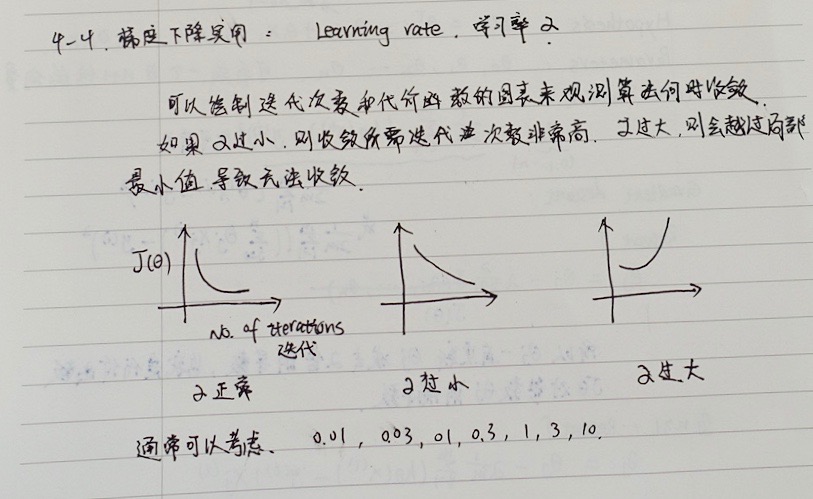 4-4. 梯度下降实用: Learning rate. 学习率 α
可以绘制迭代次数和代价函数的图表来观测算法何时收敛.
如果α过小,则收敛所需迭代次数非常高. α过大,则会越过局部
最小值 导致无法收敛.
J(θ)
No. of iterations
迭代
α正常 α过小 α过大
通常可以考虑. 0.01, 0.03, 01, 0.3, 1, 3, 10.